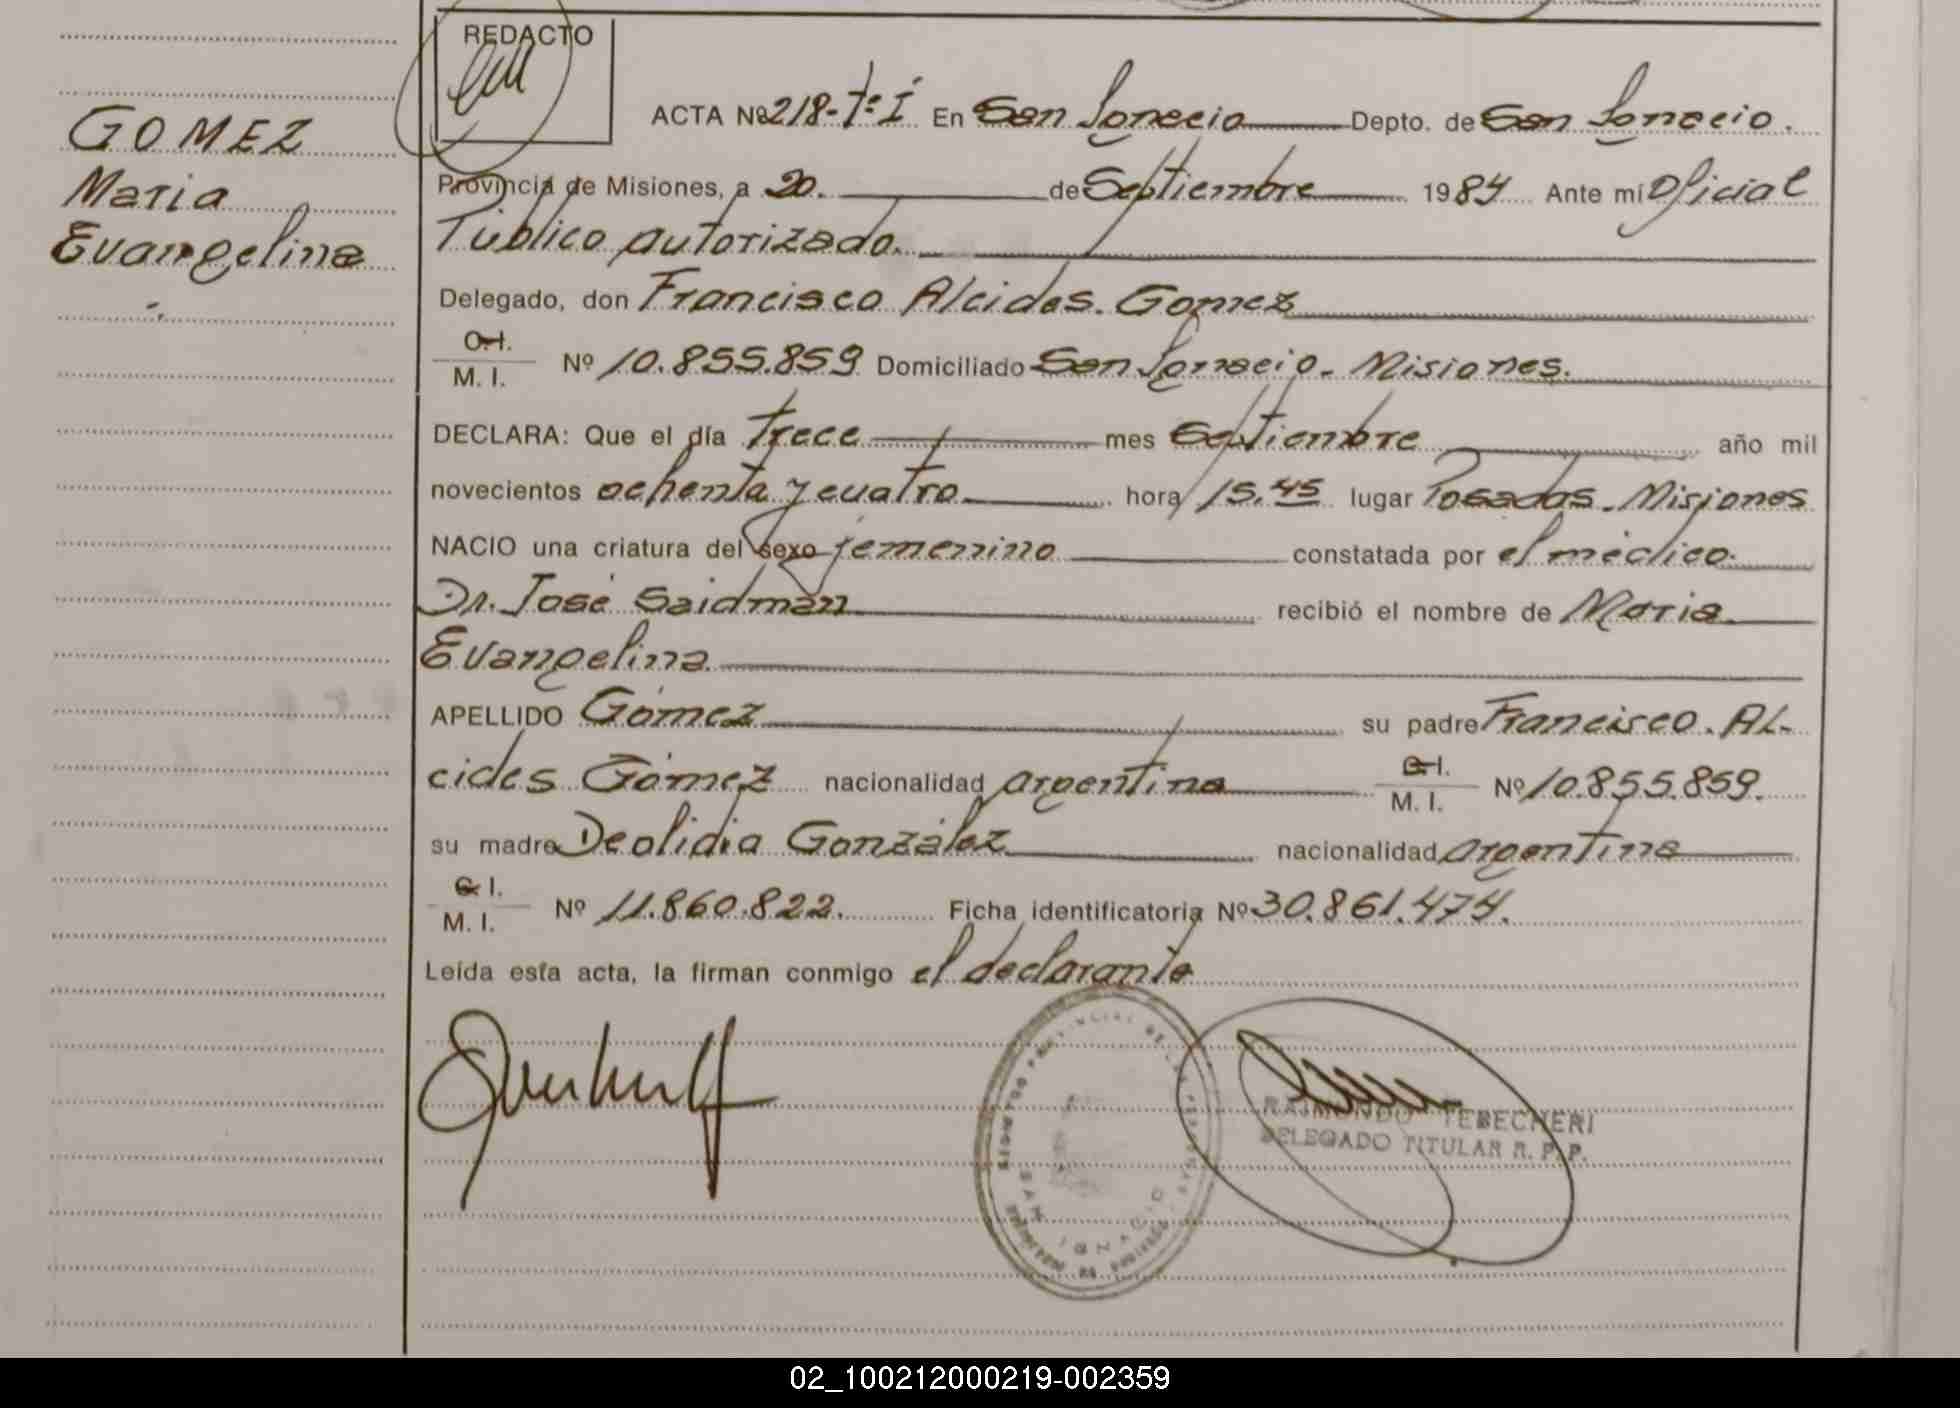 GOMEZ
Maria
Evangelina
REDACTO
ACTA Nº 218-Tº I En San Ignacio Depto. de San Ignacio.
Provincia de Misiones, a 20. de Septiembre 1984 Ante mí Oficial
Público autorizado.
Delegado, don Francisco Alcides. Gomez
C.I.
M. I. Nº 10.855.859 Domiciliado San Ignacio. Misiones.
DECLARA: Que el día trece mes Septiembre año mil
novecientos ochenta y cuatro hora 15.45 lugar Posadas. Misiones
NACIO una criatura del sexo femenino constatada por el médico.
Dr. José Saidman recibió el nombre de Maria
Evangelina
APELLIDO Gómez su padre Francisco. AL-
cides Gómez nacionalidad argentina C.I.
M. I. Nº 10.855.859.
su madre Deolidia González nacionalidad argentina
C. I.
M. I. Nº 11.860.822. Ficha identificatoria Nº 30.861.474.
Leída esta acta, la firman conmigo el declarante
REGISTRO PROVINCIAL DE LAS PERSONAS
SAN IGNACIO
RAIMUNDO TEBECHERI
DELEGADO TITULAR R. P. P.
02_100212000219-002359